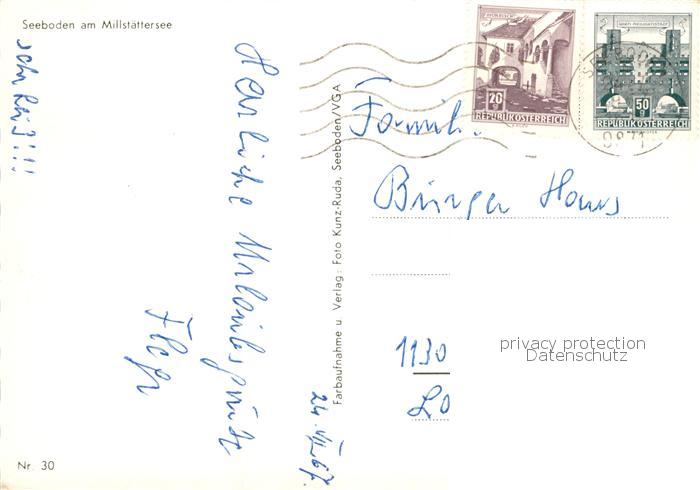 Seeboden am Millstättersee
sehr heiß!!!
Herzliche Urlaubsgrüße
24. VII. 67
Nr. 30
Farbaufnahme u. Verlag: Foto Kunz-Ruda, Seeboden/VGA
20 g
REPUBLIK ÖSTERREICH
50 g
REPUBLIK ÖSTERREICH
9871
Familie
Bürger Hans
1130
privacy protection
Datenschutz